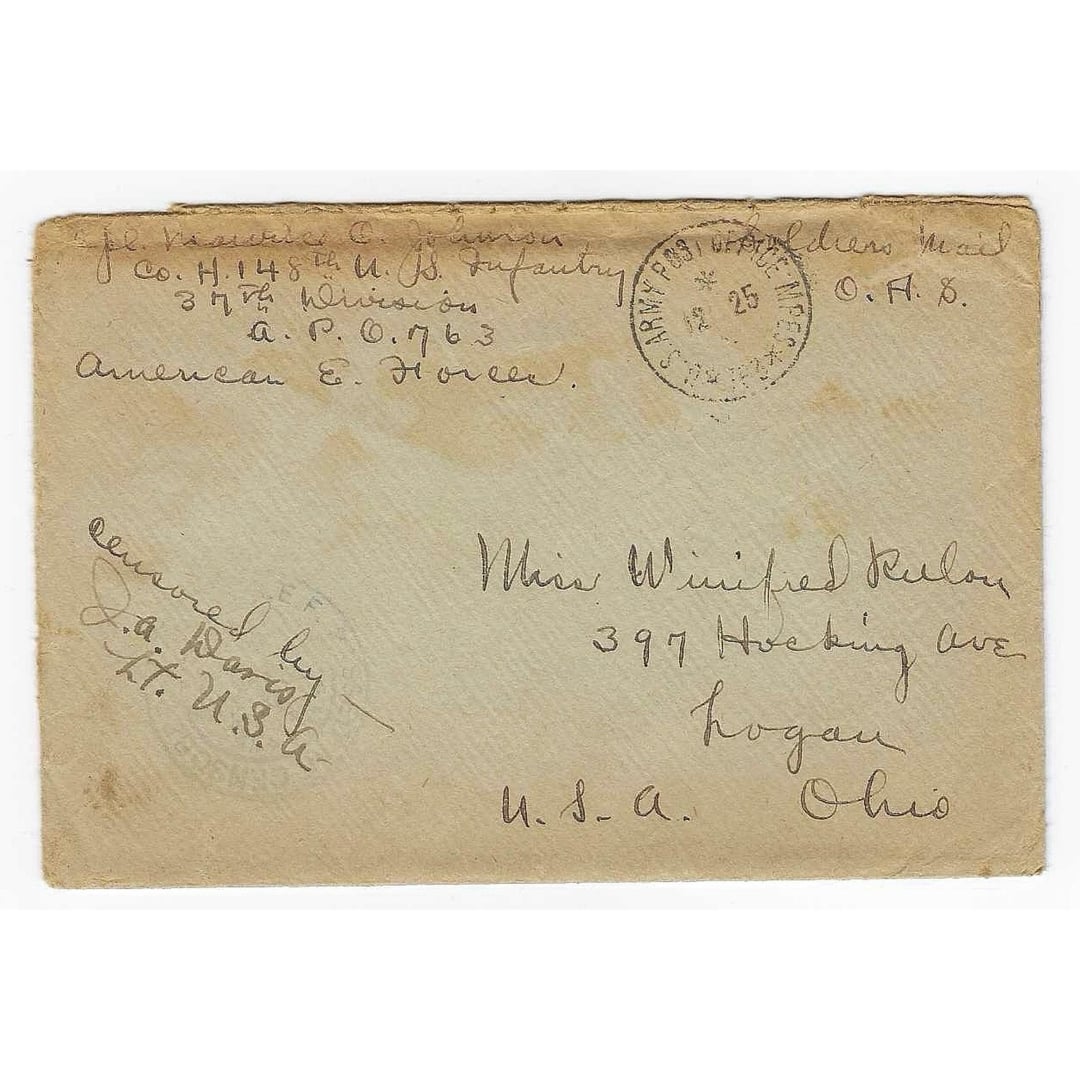 Cpl. Maurice C. Johnson
Co. H. 148th U. S. Infantry
37th Division
A. P. O. 763
American E. Forces.
Soldiers Mail
O. A. S.
U.S. ARMY POST OFFICE M.P.E.S.
12 25
Censored by
J. A. Davis
Lt. U.S.A.
CENSOR
Miss Winifred
397 Hocking Ave
Logan
U. S. A. Ohio